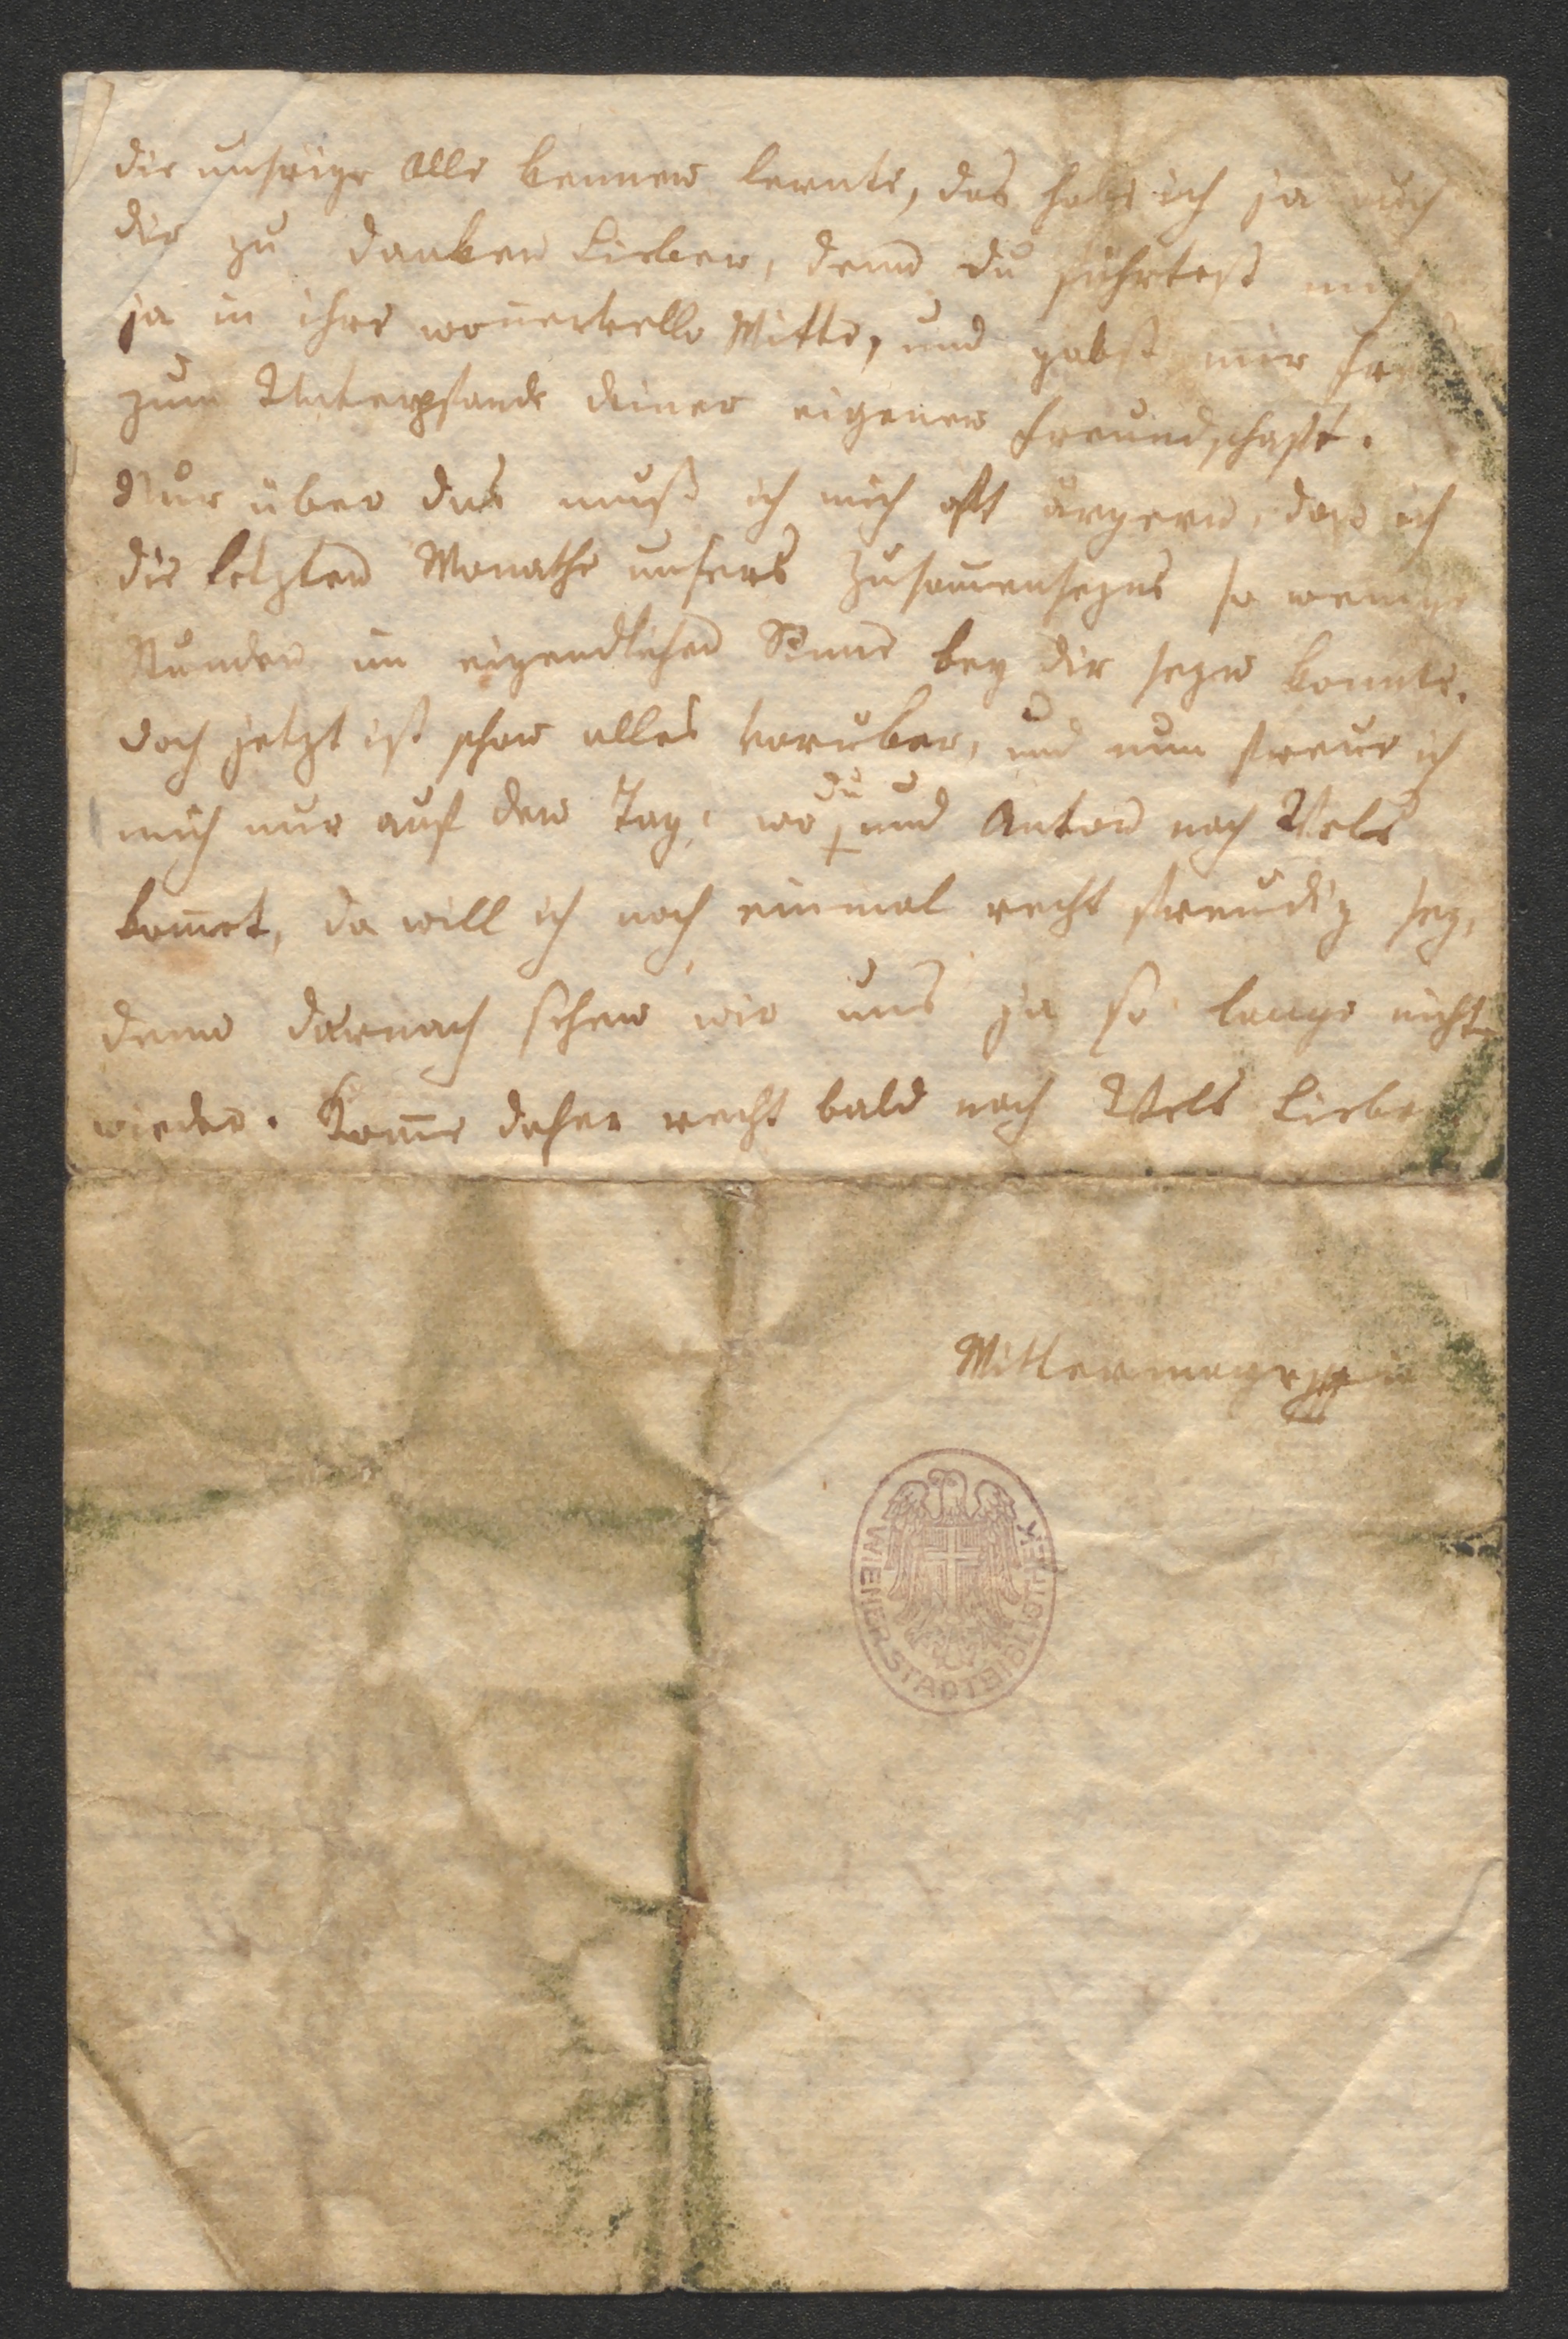 die unsrige Alle kennen lernte, das habe ich ja auch
dir zu danken Lieber, denn du führtest mich
ja in ihre wonnevolle Mitte, und gabst mir
zum Unterpfande deiner eigenen Freundschaft.
Nur über das muß ich mich oft ärgern, dass ich
die letzten Monathe unsers Zusam̅enseyns so wenige
Stunden im eigendlichen Sinne bey dir seyn konnte.
doch jetzt ist schon alles vorüber, und nun freue ich
mich nur auf den Tag, wo du und Anton nach Vels
kom̅et, da will ich noch einmal recht freudig sey,
denn darnach sehen wir uns ja so lange nicht
wieder. Kom̅e daher recht bald nach Vels Lieber
Mittermayr
WIENER STADTBIBLIOTHEK